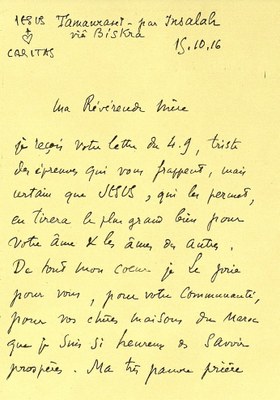 JESUS
CARITAS
Tamanrasset - par Insalah
via Biskra
15.10.16
Ma Révérende Mère
je reçois votre lettre du 4.9, triste
des épreuves qui vous frappent, mais
certain que JESUS, qui les permet,
en tirera le plus grand bien pour
votre âme & les âmes des autres.
De tout mon coeur je Le prie
pour vous, pour votre Communauté,
pour vos chères maisons du Maroc
que je suis si heureux de savoir
prospères. Ma très pauvre prière